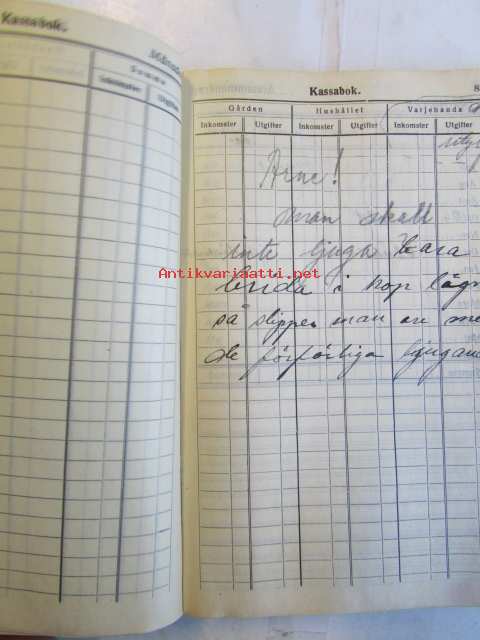 Kassabok.
Summa
Inkomster
Utgifter
Kassabok.
8
Gården
Hushållet
Varjehanda
Inkomster
Utgifter
Inkomster
Utgifter
Inkomster
Utgifter
Arne!
man skall
inte ljuga bara
i hop lögn
så slipper man me
de förfärliga ljugand
Antikvariaatti.net